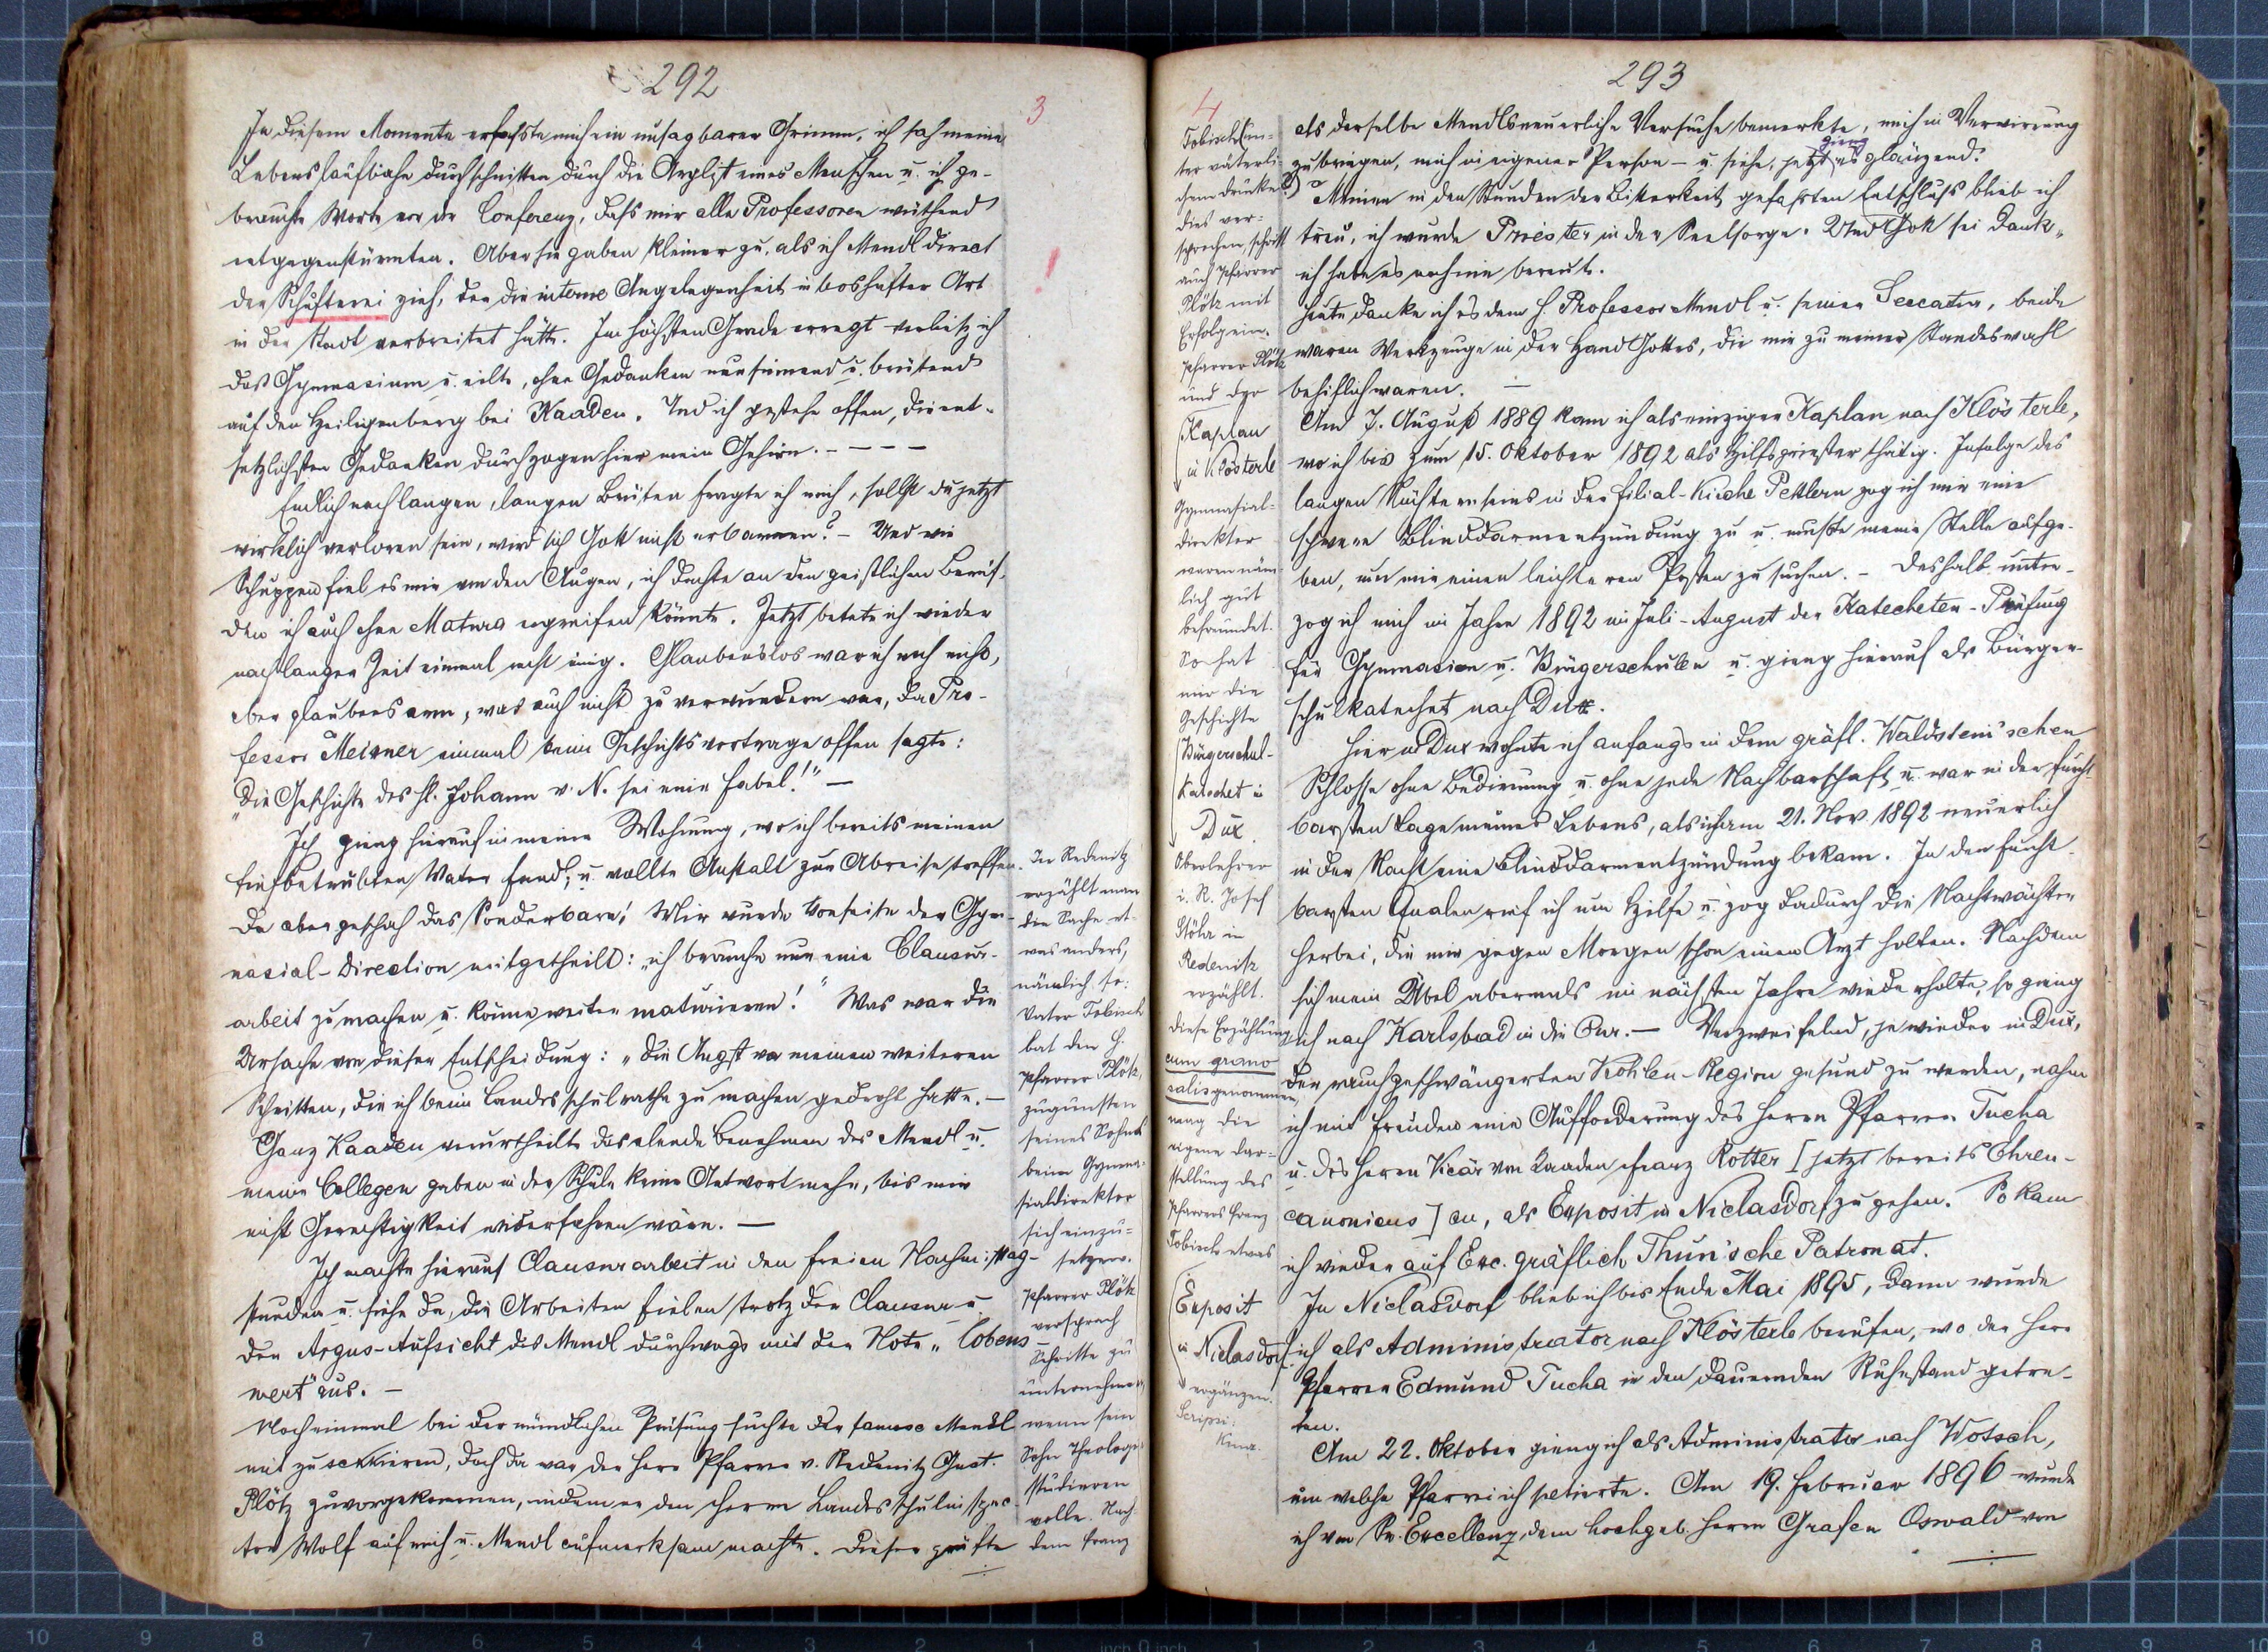 292
3
In diesem Momente erfasste mich ein unsagbarer Grimm, ich sah meine
Lebenslaufbahn durchschnitten durch die Arglist eines Menschen u. ich ge-
brauchte Worte vor der Conferenz, dass mir alle Professoren wüthend
entgegenstürmten. Aber sie gaben kleiner zu, als ich Mendl direct
der Schufterei zieh, der die interne Angelegenheit in boshafter Art
in der Stadt verbreitet hätte. Im höchsten Grade erregt verließ ich
das Gymnasium u. eilte, ohne Gedanken, sinnend u. brütend
auf den Heiligenberg bei Kaaden. Und ich gestehe offen, die ent-
setzlichsten Gedanken durchzogen hier mein Gehirn. - - - -
Endlich nach langen, langen Brüten fragte ich mich, sollst du jetzt
wirklich verloren sein, wird sich Gott nicht erbarmen? - Und wie
Schuppen fiel es mir von den Augen, ich dachte an den geistlichen Beruf,
den ich auch ohne Matura ergreifen könnte. Jetzt betete ich wieder
nach langer Zeit einmal recht innig. Glaubenslos war ich noch nicht,
aber glaubensarm, was auch nicht zu verwundern war, da Pro-
fessor Meixner einmal beim Geschichtsvortrage offen sagte:
"Die Geschichte des hl. Johann v. N. sei eine Fabel!" -
Ich gieng hierauf in meine Wohnung, wo ich bereits meinen
tiefbetrübten Vater fand, u. wollte Anstalt zur Abreise treffen.
Da aber geschah das Sonderbare! Mir wurde vonseite der Gym-
nasial-Direction mitgetheilt: "ich brauche nur eine Clausur-
arbeit zu machen u. könne weiter maturieren!" Was war die
Ursache von dieser Entscheidung: "Die Angst vor meinen weiteren
Schritten, die ich beim Landesschulrathe zu machen gedroht hatte. -
Ganz Kaaden verurtheilte das elende Benehmen des Mendl u.
meine Collegen gaben in der Schule keine Antwort mehr, bis mir
nicht Gerechtigkeit widerfahren wäre. -
Ich machte hierauf Clausurarbeit in den freien Nachmittag-
stunden u. siehe da, die Arbeiten fielen trotz der Clausur u.
der Argus-Aufsicht des Mendl durchwegs mit der Note "lobens-
wert" aus. -
Noch einmal bei der mündlichen Prüfung suchte der famose Mendl
mich zu sekkieren, doch da war der Herr Pfarrer v. Redenitz Gust.
Plötz zuvorgekommen, indem er den Herrn Landesschulinspec-
tor Wolf auf mich u. Mendl aufmerksam machte. Dieser prüfte
In Redenitz
erzählt man
die Sache et-
was anders,
nämlich so:
Vater Tobisch
bat den H.
Pfarrer Plötz,
zugunsten
seines Sohnes
beim Gymna-
sialdirektor
sich einzu-
setzen.
Pfarrer Plötz
versprach
Schritte zu
unternehmen,
wenn sein
Sohn Theologie
studieren
wolle. Nach-
dem Franz
293
4
Tobisch (un-
ter väterli-
chem Drucke?)
dies ver-
sprochen, schritt
auch Pfarrer
Plötz mit
Erfolg ein.
Pfarrer Plötz
und der
Kaplan
in Klösterle
Gymnasial-
direktor
waren näm-
lich gut
befreundet.
So hat
mir die
Geschichte
Bürgerschul-
Katechet in
Dux
Oberlehrer
i. R. Josef
Stöhr in
Redenitz
erzählt.
Diese Erzählung
cum grano
salis genommen,
mag die
eigene Dar-
stellung des
Pfarrers Franz
Tobisch etwas
Exposit
in Niclasdorf
ergänzen.
Scripsi:
als derselbe Mendls neuerliche Versuche bemerkte, mich in Verwirrung
zu bringen, mich in eigener Person - u. siehe, jetzt gieng es glänzend.
Meinen in den Stunden der Bitterkeit gefassten Entschluss blieb ich
treu, ich wurde Priester in der Seelsorge. Und Gott sei Dank,
ich habe es nie bereut.
Heute danke ich es dem H. Professor Mendl u. seiner Seccatur, beide
waren Werkzeuge in der Hand Gottes, die mir zu meiner Standeswahl
behilflich waren. -
Am 7. August 1889 kam ich als einziger Kaplan nach Klösterle,
wo ich bis zum 15. Oktober 1892 als Hilfspriester thätig. Infolge des
langen Nüchternseins in der Filial-Kirche Petlern zog ich mir eine
schwere Blinddarmentzündung zu u. mußte meine Stelle aufge-
ben, um mir einen leichteren Posten zu suchen. - Deshalb unter-
zog ich mich im Jahre 1892 im Juli-August der Katecheten-Prüfung
für Gymnasien u. Bürgerschulen u. gieng hierauf als Bürger-
schulkatechet nach Dux.
Hier in Dux wohnte ich anfangs in dem gräfl. Waldstein'schen
Schlosse ohne Bedienung u. ohne jede Nachbarschaft u. war in der furcht-
barsten Lage meines Lebens, als ich am 21. Nov. 1892 neuerlich
in der Nacht eine Blinddarmentzündung bekam. In den furcht-
barsten Qualen rief ich um Hilfe u. zog dadurch die Nachtwächter
herbei, die mir gegen Morgen schon einen Arzt holten. Nachdem
sich mein Übel abermals im nächsten Jahre wiederholte, so gieng
ich nach Karlsbad in die Cur. - Verzweifelnd, je wieder in Dux,
der rauchgeschwängerten Kohlen-Region gesund zu werden, nahm
ich mit Freuden eine Aufforderung des Herrn Pfarrer Tucha
u. des Herrn Vicär von Kaaden Franz Rotter [jetzt bereits Ehren-
canonicus] an, als Exposit in Niclasdorf zu gehen. So kam
ich wieder auf Exc. gräflich Thun'sche Patronat.
In Niclasdorf blieb ich bis Ende Mai 1895, dann wurde
ich als Administrator nach Klösterle berufen, wo der Herr
Pfarrer Edmund Tucha in den dauernden Ruhestand getre-
ten.
Am 22. Oktober gieng ich als Administrator nach Wotsch,
um welche Pfarrei ich petierte. Am 19. Februar 1896 wurde
ich von Sr. Excellenz, dem hochgeb. Herrn Grafen Oswald von